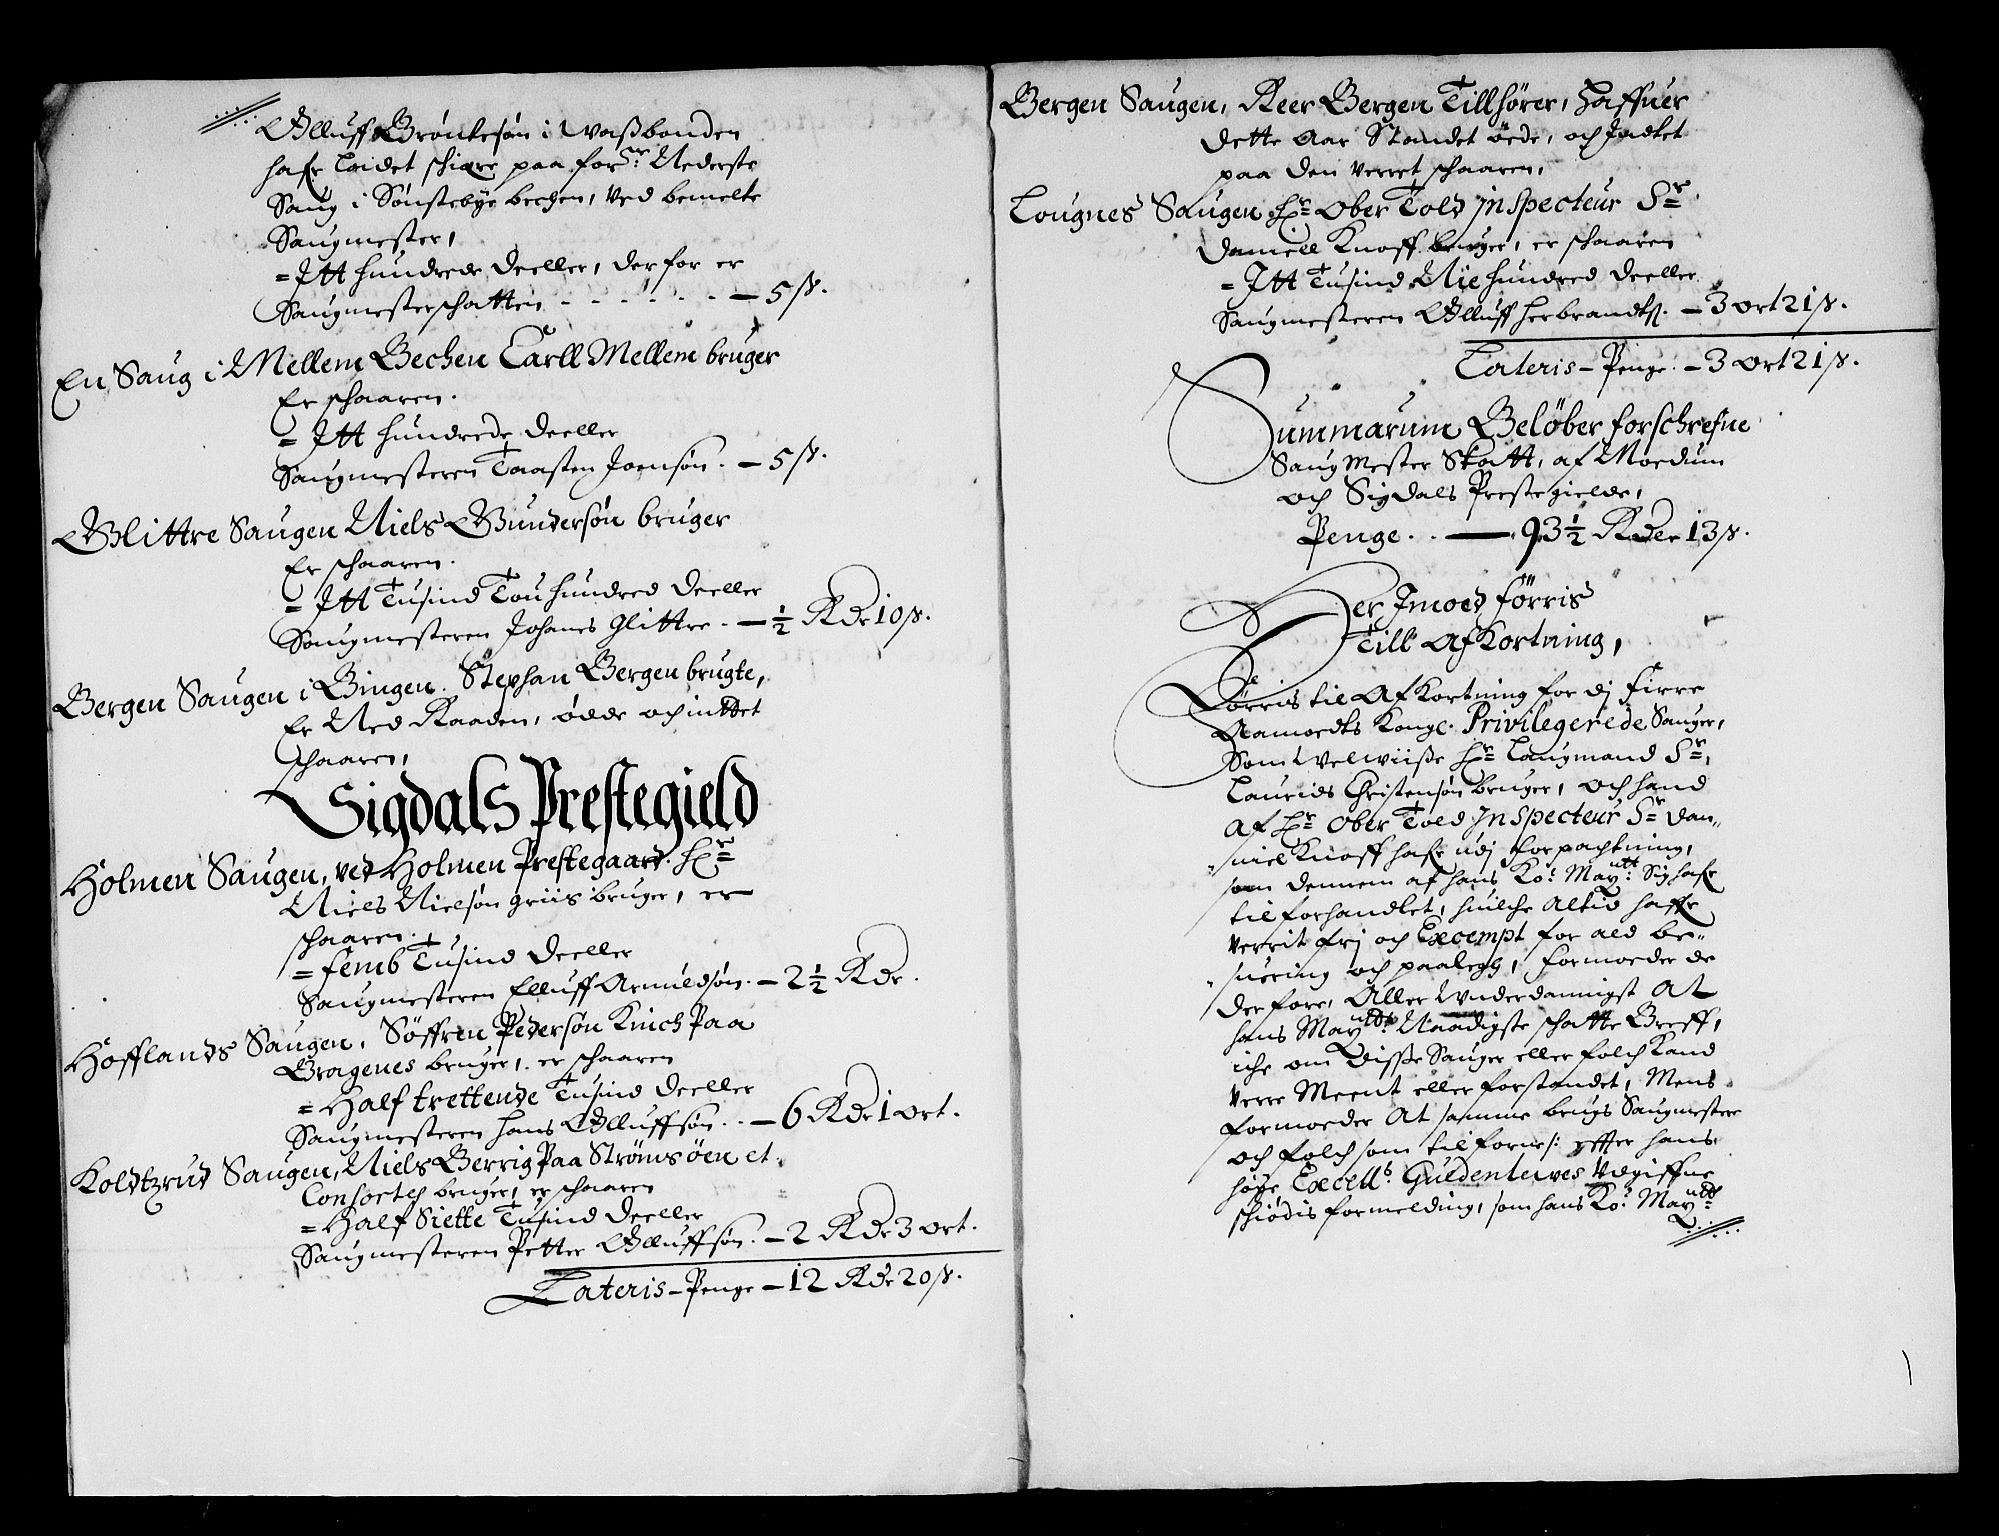 Olluff Grönkesøn i Waßbonden
hafr loidet schiere paa forne: Nederste
Saug i Sønstebye bechen, ved bemelte
Saugmester,
= Itt hundrede Deeller, der for er
Saugmesterschatten - - - - - - — 5 ß.
En Saug i Mellem Bechen Carll Mellem bruger
Er schaaren.
= Itt hundrede Deeller
Saugmesteren Taasten Joensøn. — 5 ß.
Glittre Saugen Niels Gundersøn bruger
Er schaaren.
= Itt Tusind Tou hundred Deeller
Saugmesteren Johanes Glittre. — ½ Rdr 10 ß.
Bergen Saugen i Bingen. Stephan Bergen brugte,
Er Ned Raaden, øde och inttet
schaaren,
Sigdals Prestegield
Holmen Saugen, ved Holmen Prestegaard. Hr
Niels Nielsøn Griis bruger, er
schaaren.
= femb Tusind Deeller
Saugmesteren Elluff Arnuldsøn. — 2 ½ Rdr.
Hofflands Saugen. Söffren Pedersøn Kinch Paa
Bragenes bruger, er schaaren
= Half trettende Tusind Deeller
Saugmesteren Hans Olluffsøn. . — 6 Rdr 1 ort.
Koldtzrud Saugen, Niels Berrig Paa Strömsöen et.
Consortes bruger, er schaaren
= Half Siette Tusind Deeller
Saugmesteren Petter Olluffsøn. — 2 Rdr 3 ort.
Lateris – Penge — 12 Rdr 20 ß.
Bergen Saugen, Peer Bergen Tillhörer, Haffuer
dette Aar Standet öede, och Indtet
paa den verret schaaren,
Lougnes Saugen Hr Ober Told Inspecteur Sr
Daniell Knoff bruger, er schaaren
= Itt Tusind Nie hundred Deeller
Saugmesteren Olluff Herbrandtß. — 3 ort 21 ß.
Lateris – Penge. — 3 ort 21 ß.
Summarum Belöber forschrefne
Saug Mester Skatt, af Modum
och Sigdals Prestegielde,
Penge. . — 93 ½ Rder 13 ß.
Der Imoed förris
Till Afkortning,
Förris til Afkortning for dj fire
Namoedts Kongl. Privilegerede Sauger,
Som Welwiiße Hr Laugmand Sr,
Laurids Christensøn bruger, och hand
Af Hr Ober Told Inspecteur Sr Dan„
„niel Knoff hafr udj forpachtning,
som dennem af hans Ko: Maytt: Sig hafr
tilforhandlet, huilche Altid haffr
verrit frj och Exempt for ald be„
„suering och paalegh, formoeder de
derfore, Aller Underdannigst At
hans Maytts: Naadigste schatte Breff,
iche om disße Sauger eller folch kand
verre Meent eller forstandet, Mens
formoeder At samme brugs Saugmestere
och folch som tilforne: effter hans
höye Excell: Güldenlewes Udgiffne
schiödis formelding, som hans Ko: Maytt: